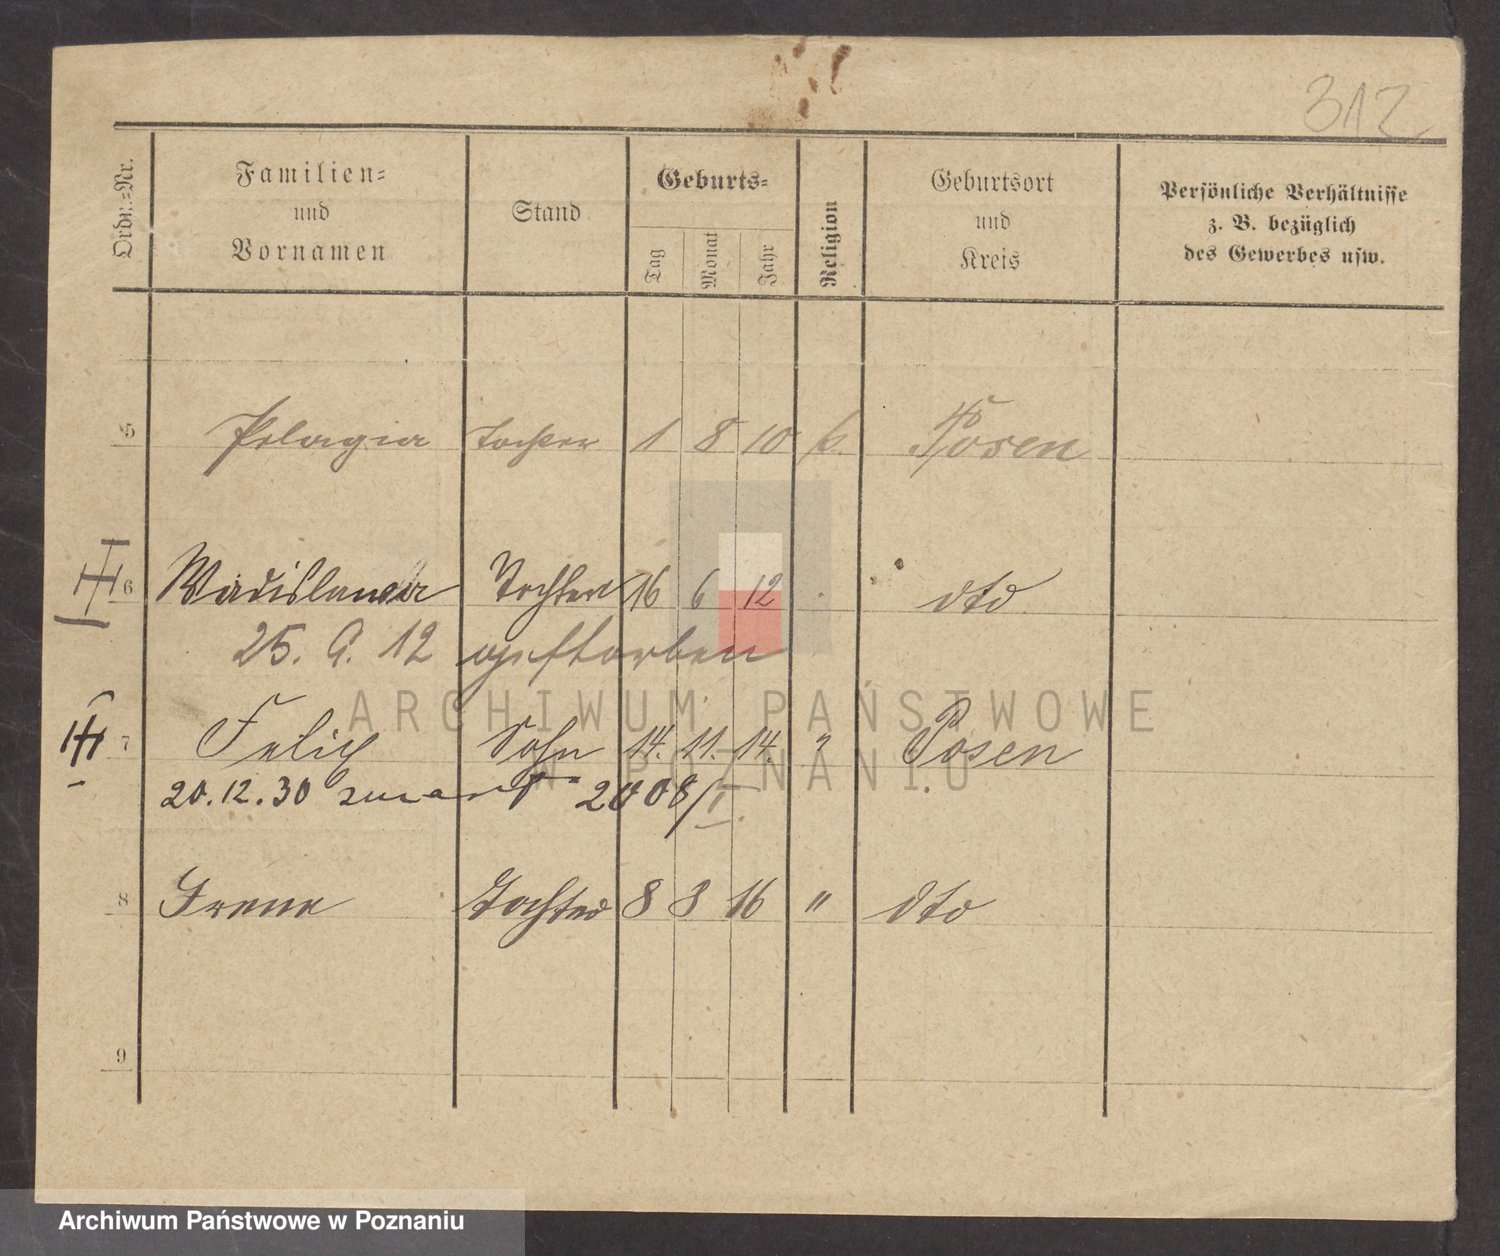 312
Ordn.=Nr.
Familien=
und
Vornamen
Stand
Geburts=
Tag
Monat
Jahr
Religion
Geburtsort
und
Kreis
Persönliche Verhältnisse
z. B. bezüglich
des Gewerbes usw.
5 Pelagia Tochter 1 8 10 k. Posen
6 Wladislawa Tochter 16 6 12 dto
25. 9. 12 gestorben
7 Felix Sohn 14. 11. 14. " Posen
20.12.30 zmarł 2008/
8 Irene Tochter 8 3 16 " dto
9
ARCHIWUM PAŃSTWOWE
W POZNANIU
Archiwum Państwowe w Poznaniu